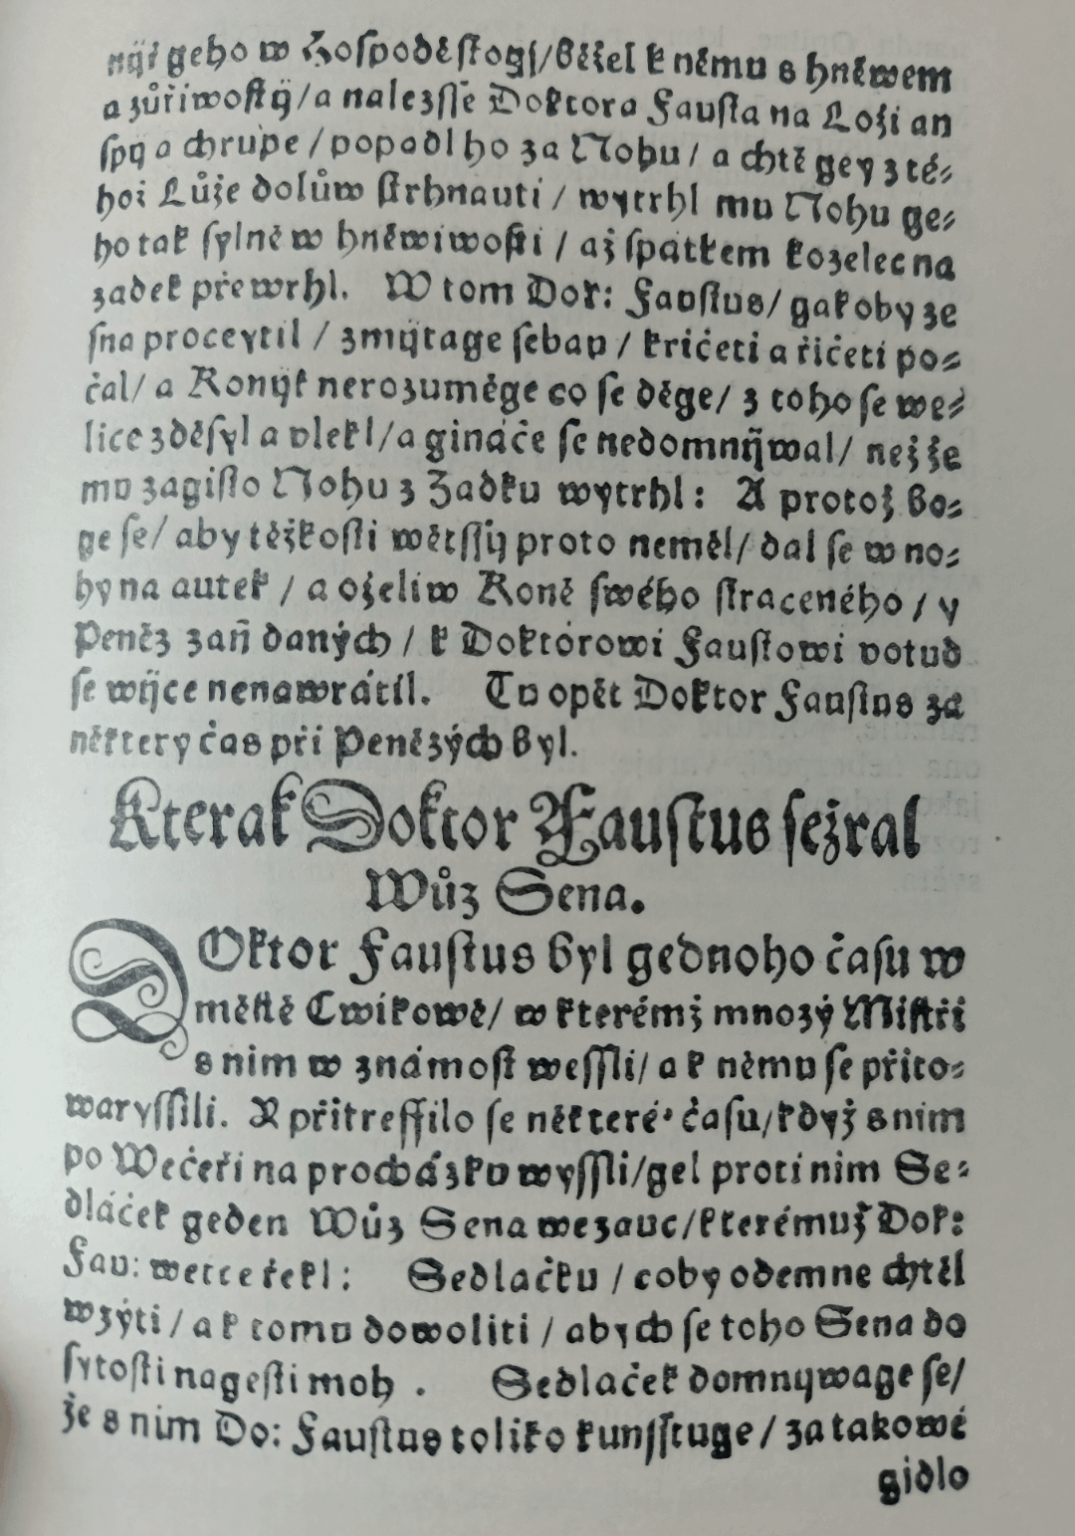 nýř geho w Hospodě stogj/běžel k němu s hněwem
a zůřiwostÿ/a nalezsse Doktora Fausta na Loži an
spÿ a chrupe / popadl ho za Nohu / a chtě gey z té⸗
hož Lůže dolůw strhnauti / wytrhl mu Nohu ge⸗
ho tak sylně w hněwiwosti / až spátkem kozelec na
zadek přewrhl. W tom Dok: Faustus/ gakoby ze
sna proceytil / zmÿtage sebau / kričeti a řičeti po⸗
čal/ a Konÿř nerozuměge co se děge/ z toho se we⸗
lice zděsyl a vlekl/a gináče se nedomnÿwal/ než že
mu zagisto Nohu z Zadku wytrhl: A protož bo⸗
ge se/ aby těžkosti wětssÿ proto neměl/ dal se w no⸗
hy na autek / a oželiw Koně swého straceného / y
Peněz zaň daných / k Doktorowi Faustowi votud
se wÿce nenawrátil. Tu opět Doktor Faustus za
některy čas při Penězých byl.
Kterak Doktor Faustus sežral
Wůz Sena.
DOktor Faustus byl gednoho času w
městě Cwikowě/ w kterémž mnozý Mistři
s nim w známost wessli/ a k němu se přito⸗
waryssili. A přitreffilo se některé° času/když s nim
po Wečeři na procházku wyssli/gel proti nim Se⸗
dláček geden Wůz Sena wezauc/kterémuž Dok:
Fau: wecce řekl: Sedlačku / coby odemne chtěl
wzýti / a k tomu dowoliti / abych se toho Sena do
sytosti nagesti moh . Sedlaček domnywage se/
že s nim Do: Faustus toliko kunsstuge / za takowé
gidlo